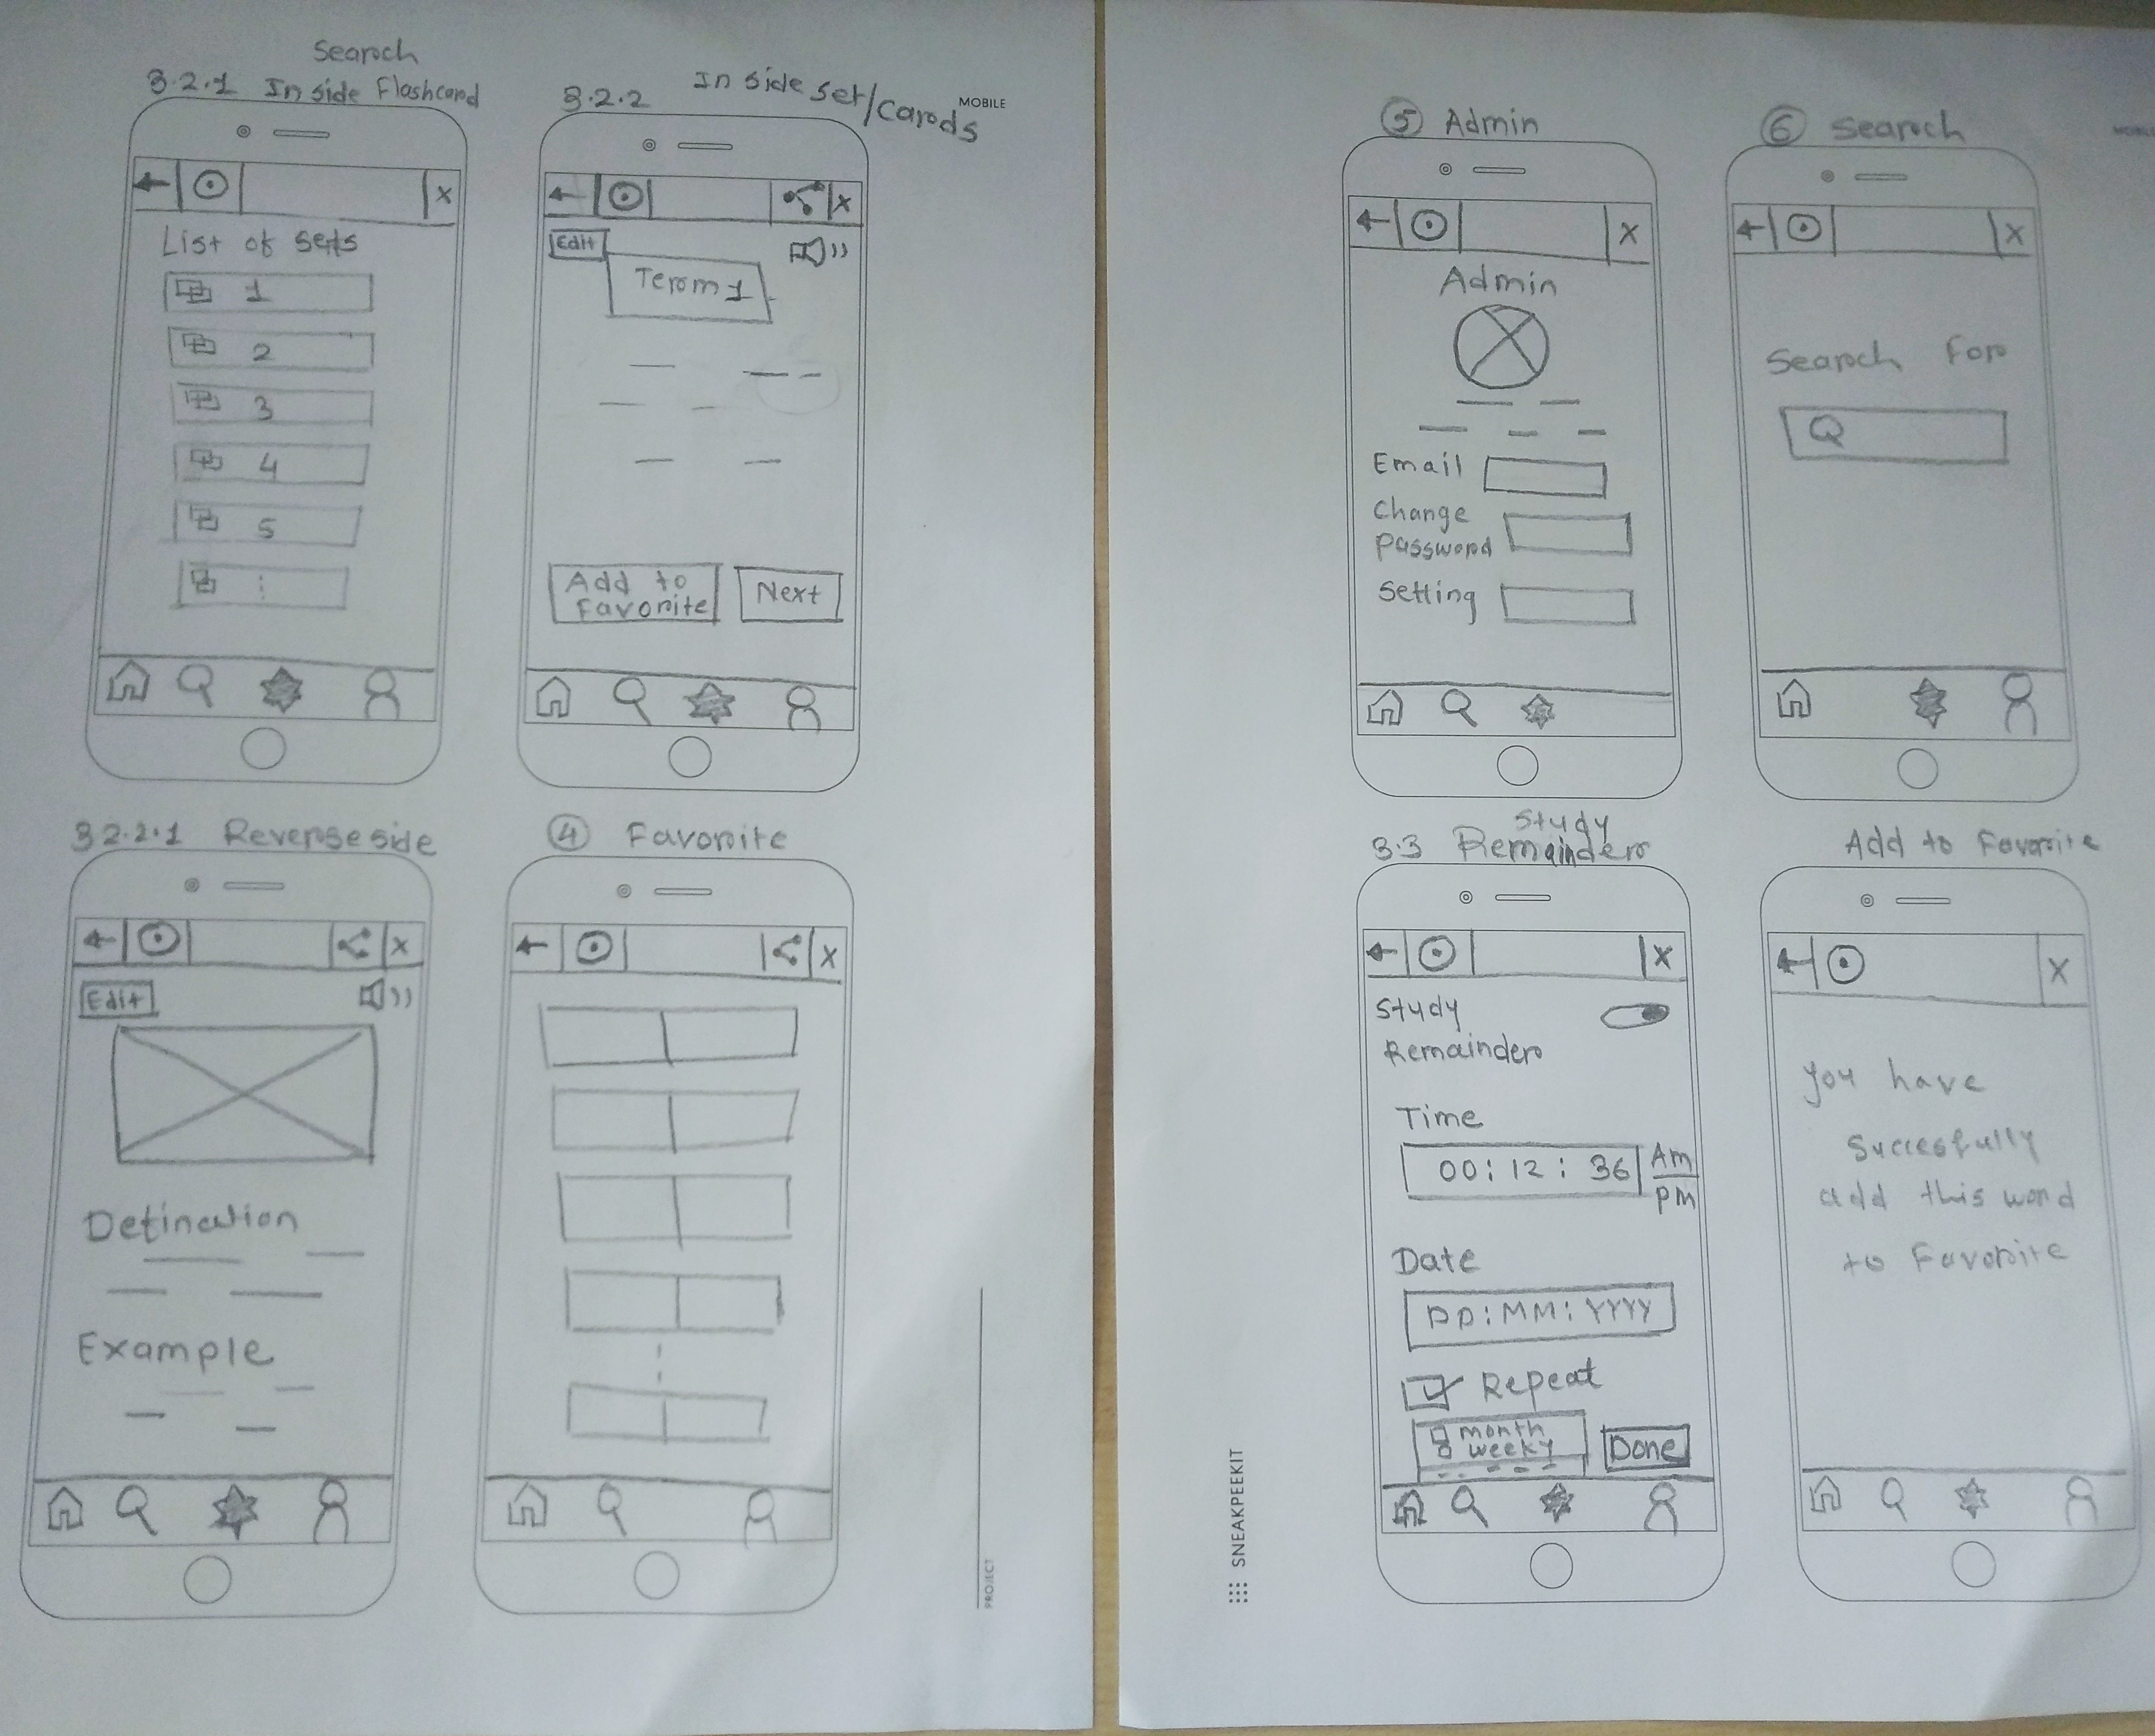 Search
3.2.1 Inside Flashcard
X
List of sets
1
2
3
4
5
3.2.2 Inside set/Cards
MOBILE
X
Edit
Term 1
Add to
Favorite
Next
3.2.2.1 Reverse side
X
Edit
Defination
Example
4 Favorite
X
PROJECT
5 Admin
X
Admin
Email
Change
Password
Setting
6 Search
X
Search For
Study
3.3 Remainder
X
Study
Remainder
Time
00:12:36 Am
pm
Date
DD:MM:YYYY
Repeat
month
weeky
Done
Add to Favorite
X
you have
Succesfully
add this word
to Favorite
SNEAKPEEKIT